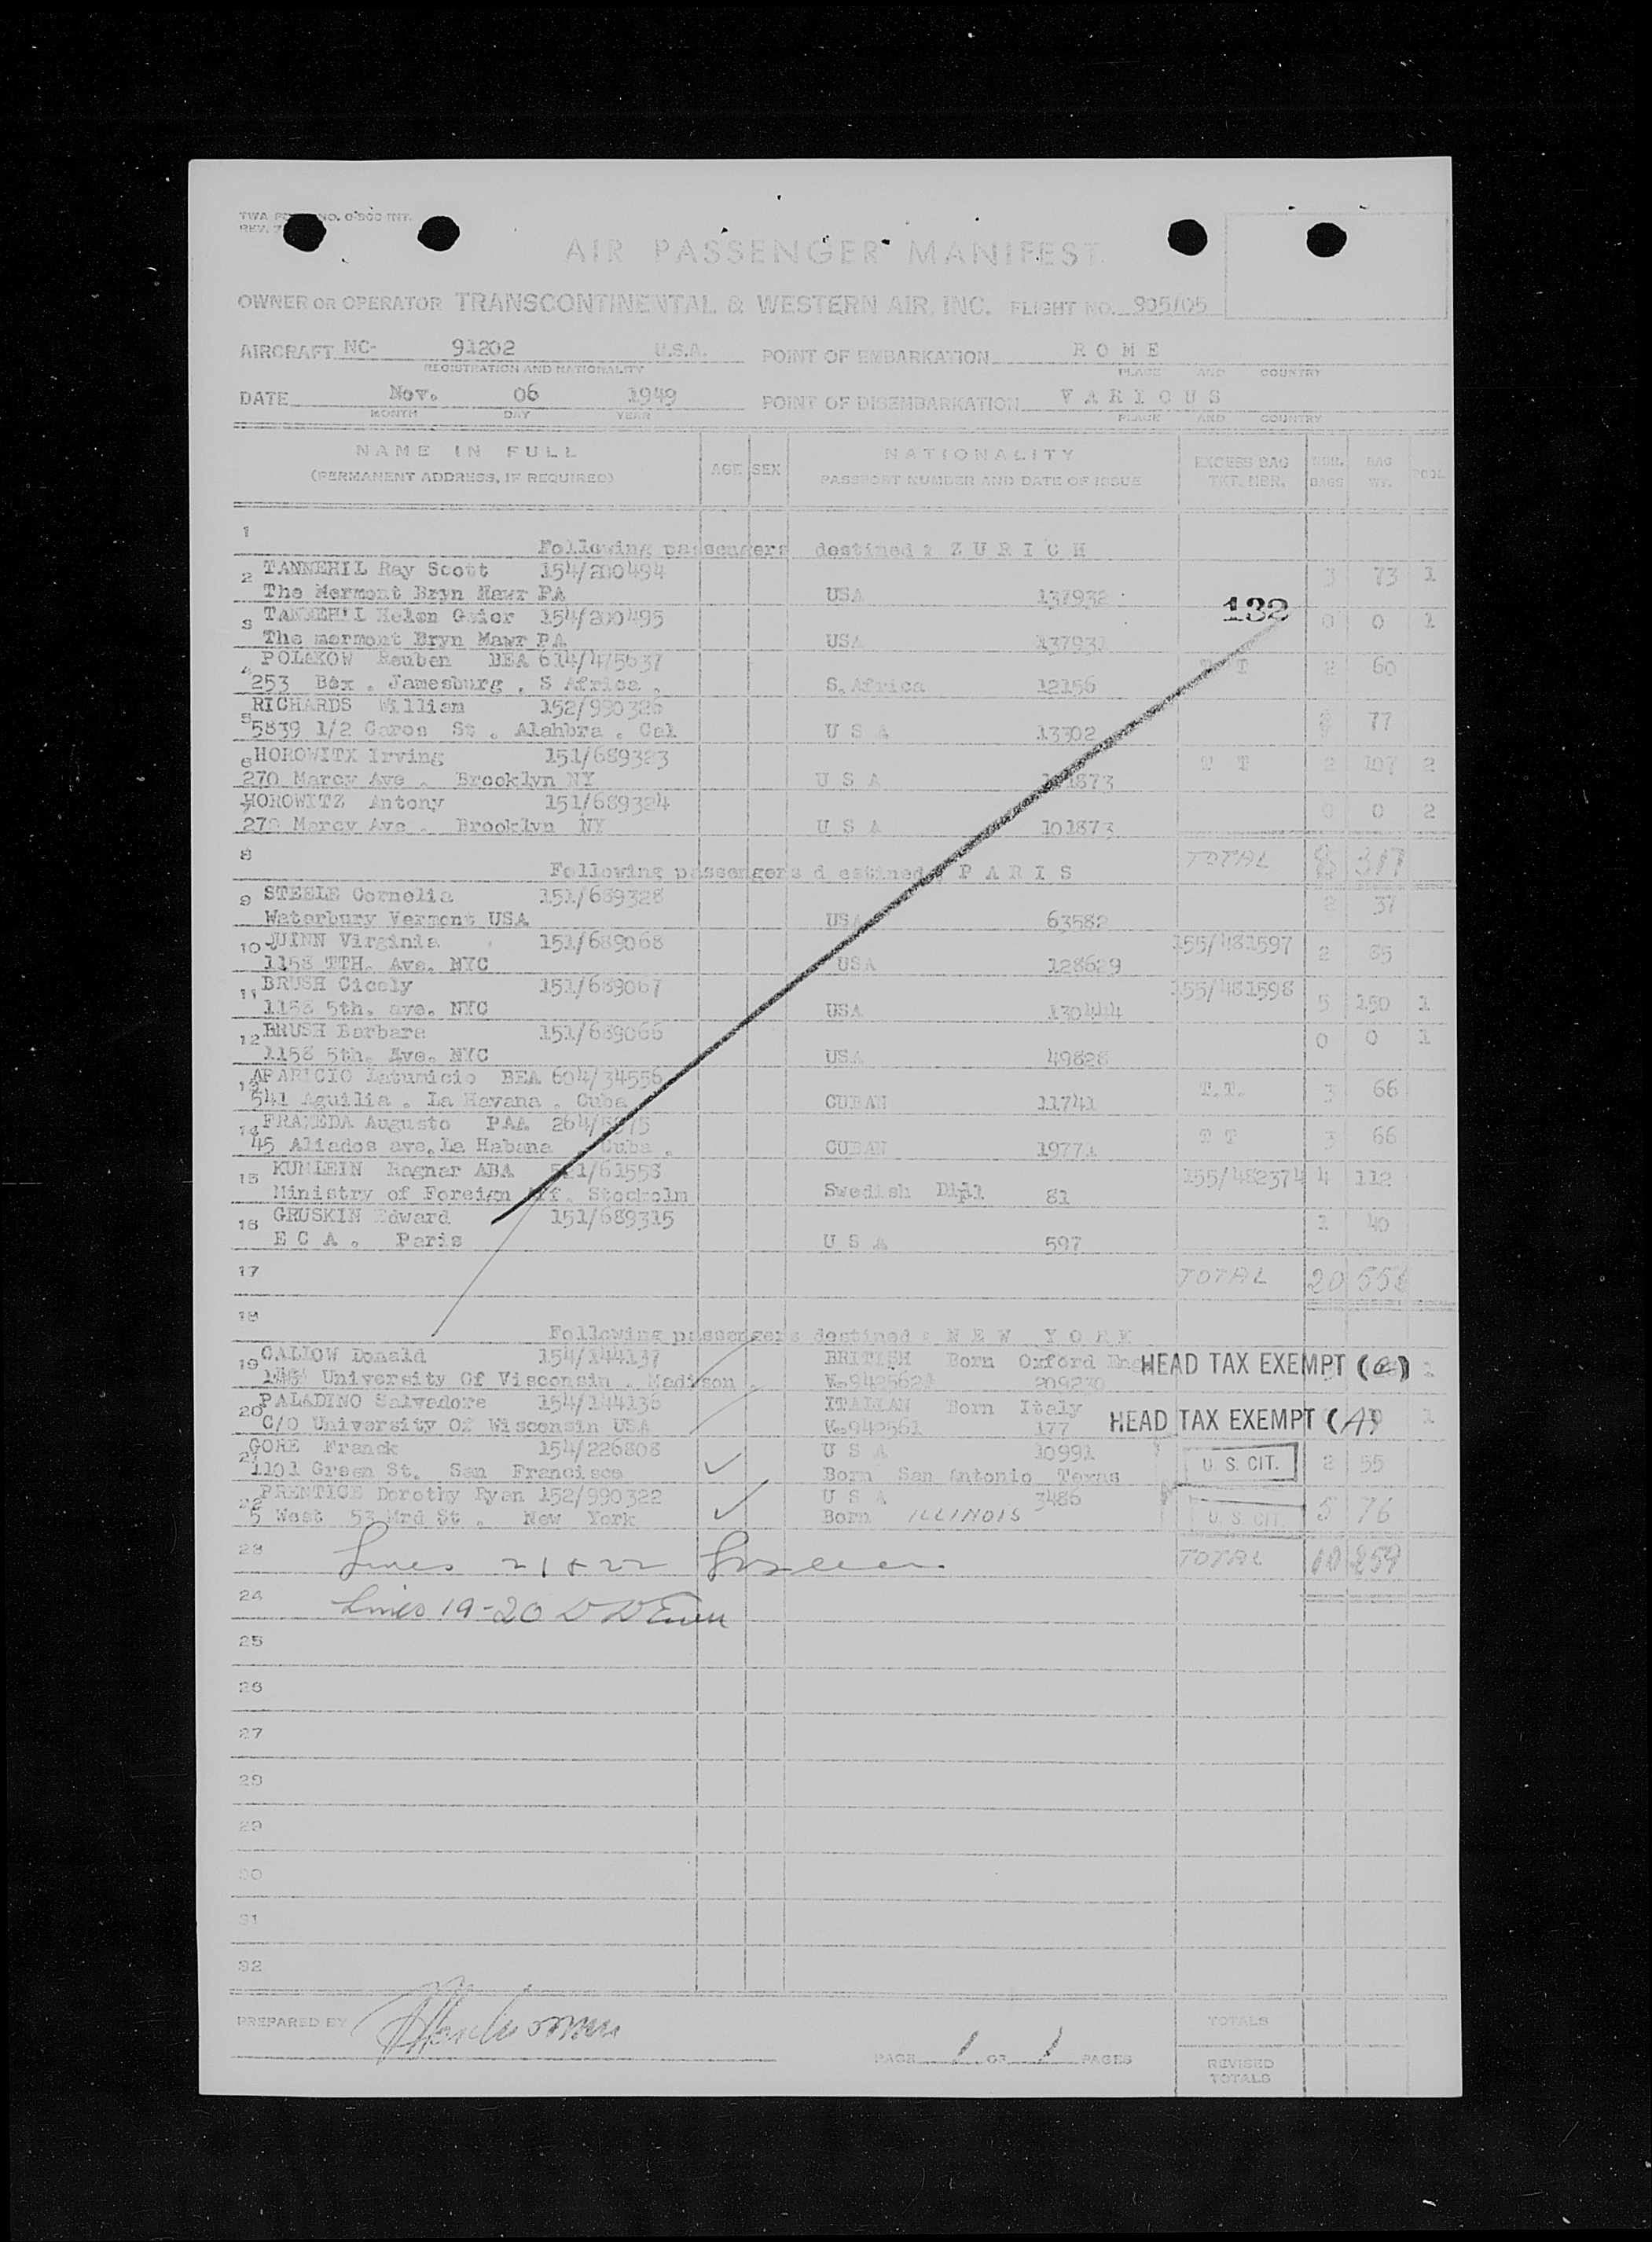 TWA NO. INT.
REV.
AIR PASSENGER MANIFEST
OWNER OR OPERATOR TRANSCONTINENTAL & WESTERN AIR, INC. FLIGHT NO. 805/05
AIRCRAFT NC- 91202 U.S.A. POINT OF EMBARKATION R O M E
REGISTRATION AND NATIONALITY PLACE AND COUNTRY
DATE Nov. 06 1949 POINT OF DISEMBARKATION V A R I O U S
MONTH DAY YEAR PLACE AND COUNTRY
NAME IN FULL NATIONALITY EXCESS BAG NBR. BAG
(PERMANENT ADDRESS, IF REQUIRED) AGE SEX PASSPORT NUMBER AND DATE OF ISSUE TKT. NBR. BAGS WT. POOL
1 Following passengers destined : Z U R I C H
2 TANNEHIL Ray Scott 154/200494 3 73 1
The Mermont Bryn Mawr PA USA 137932
132
3 TANNEHIL Helen Geier 154/200495 0 0 1
The mermont Bryn Mawr PA USA 137931
4 POLAKOW Reuben BEA 614/475637 T T 2 60
253 Box . Jamesburg . S Africa . S.Africa 12156
5 RICHARDS William 152/990326 77
5839 1/2 Caron St . Alahbra . Cal U S A 13302
6 HOROWITX Irving 151/689323 T T 2 107 2
270 Marcy Ave . Brooklyn NY U S A 101873
HOROWITZ Antony 151/689324 0 0 2
270 Marcy Ave . Brooklyn NY U S A 101873
8 Following passengers d estined : P A R I S TOTAL 317
9 STEELE Cornelia 151/689328 2 37
Waterbury Vermont USA USA 63582
10 QUINN Virginia 151/689068 155/481597 2 85
1158 TTH. Ave. NYC USA 128629
11 BRUSH Cicely 151/689067 155/481598 5 150 1
1158 5th. ave. NYC USA 130444
12 BRUSH Barbara 151/689066 0 0 1
1158 5th. Ave. NYC USA 49828
13 APARICIO BEA 604/34556 T.T. 3 66
541 Aguilia . La Havana . Cuba CUBAN 11741
14 FRAMEDA Augusto PAA 264/ T T 3 66
45 Aliados ave.La Habana . Cuba . CUBAN 19771
15 KUMLEIN Ragnar ABA 155/482374 4 112
Ministry of Foreign Aff. Stockolm Swedish Dipl 81
16 GRUSKIN Edward 151/689315 1 40
E C A . Paris U S A 597
17 TOTAL 20 556
18 Following passengers destined : N E W Y O R K
19 CALLOW Donald 154/144137 BRITISH Born Oxford Eng HEAD TAX EXEMPT ( ) 1
University Of Visconsin . Madison V. 209230
20 PALADINO Salvadore 154/144136 ITALIAN Born Italy 1
C/O University Of Wisconsin USA V.942561 177 HEAD TAX EXEMPT (A)
21 GORE Franck 154/226808 U S A 10991 U. S. CIT. 2 55
1101 Green St. San Francisco Born San Antonio Texas
22 PRENTICE Dorothy Ryan 152/990322 U S A 3486 U. S. CIT. 5 76
5 West 53 Hrd St . New York Born ILLINOIS
23 Lines 21 & 22 TOTAL 10 259
24 Lines 19-20
25
26
27
28
29
30
31
32
PREPARED BY TOTALS
PAGE 1 OF 1 PAGES REVISED
TOTALS